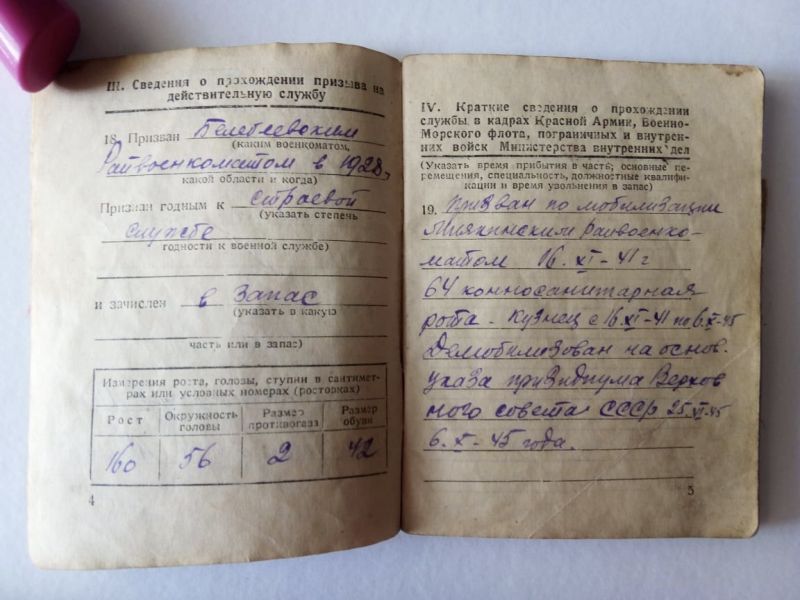 III. Сведения о прохождении призыва на
действительную службу
18. Призван Белебеевским
(каким военкоматом,
Райвоенкоматом в 1928г
какой области и когда)
Признан годным к строевой
(указать степень
службе
годности к военной службе)
и зачислен в запас
(указать в какую
часть или в запас)
Измерения роста, головы, ступни в сантимет-
рах или условных номерах (ростовках)
Рост Окружность головы Размер противогаза Размер обуви
160 56 2 42
4
IV. Краткие сведения о прохождении
службы в кадрах Красной Армии, Военно-
Морского флота, пограничных и внутрен-
них войск Министерства внутренних дел
(Указать время прибытия в часть, основные пе-
ремещения, специальность, должностные квалифи-
кации и время увольнения в запас)
19. Призван по мобилизации
Миякинским Райвоенко-
матом 16. XI-41 г
64 конносанитарная
рота - кузнец с 16.XI-41 по 6.X-45
Демобилизован на основ.
указа призидиума Верхов
ного совета СССР 25.VI-45
6. X-45 года.
5